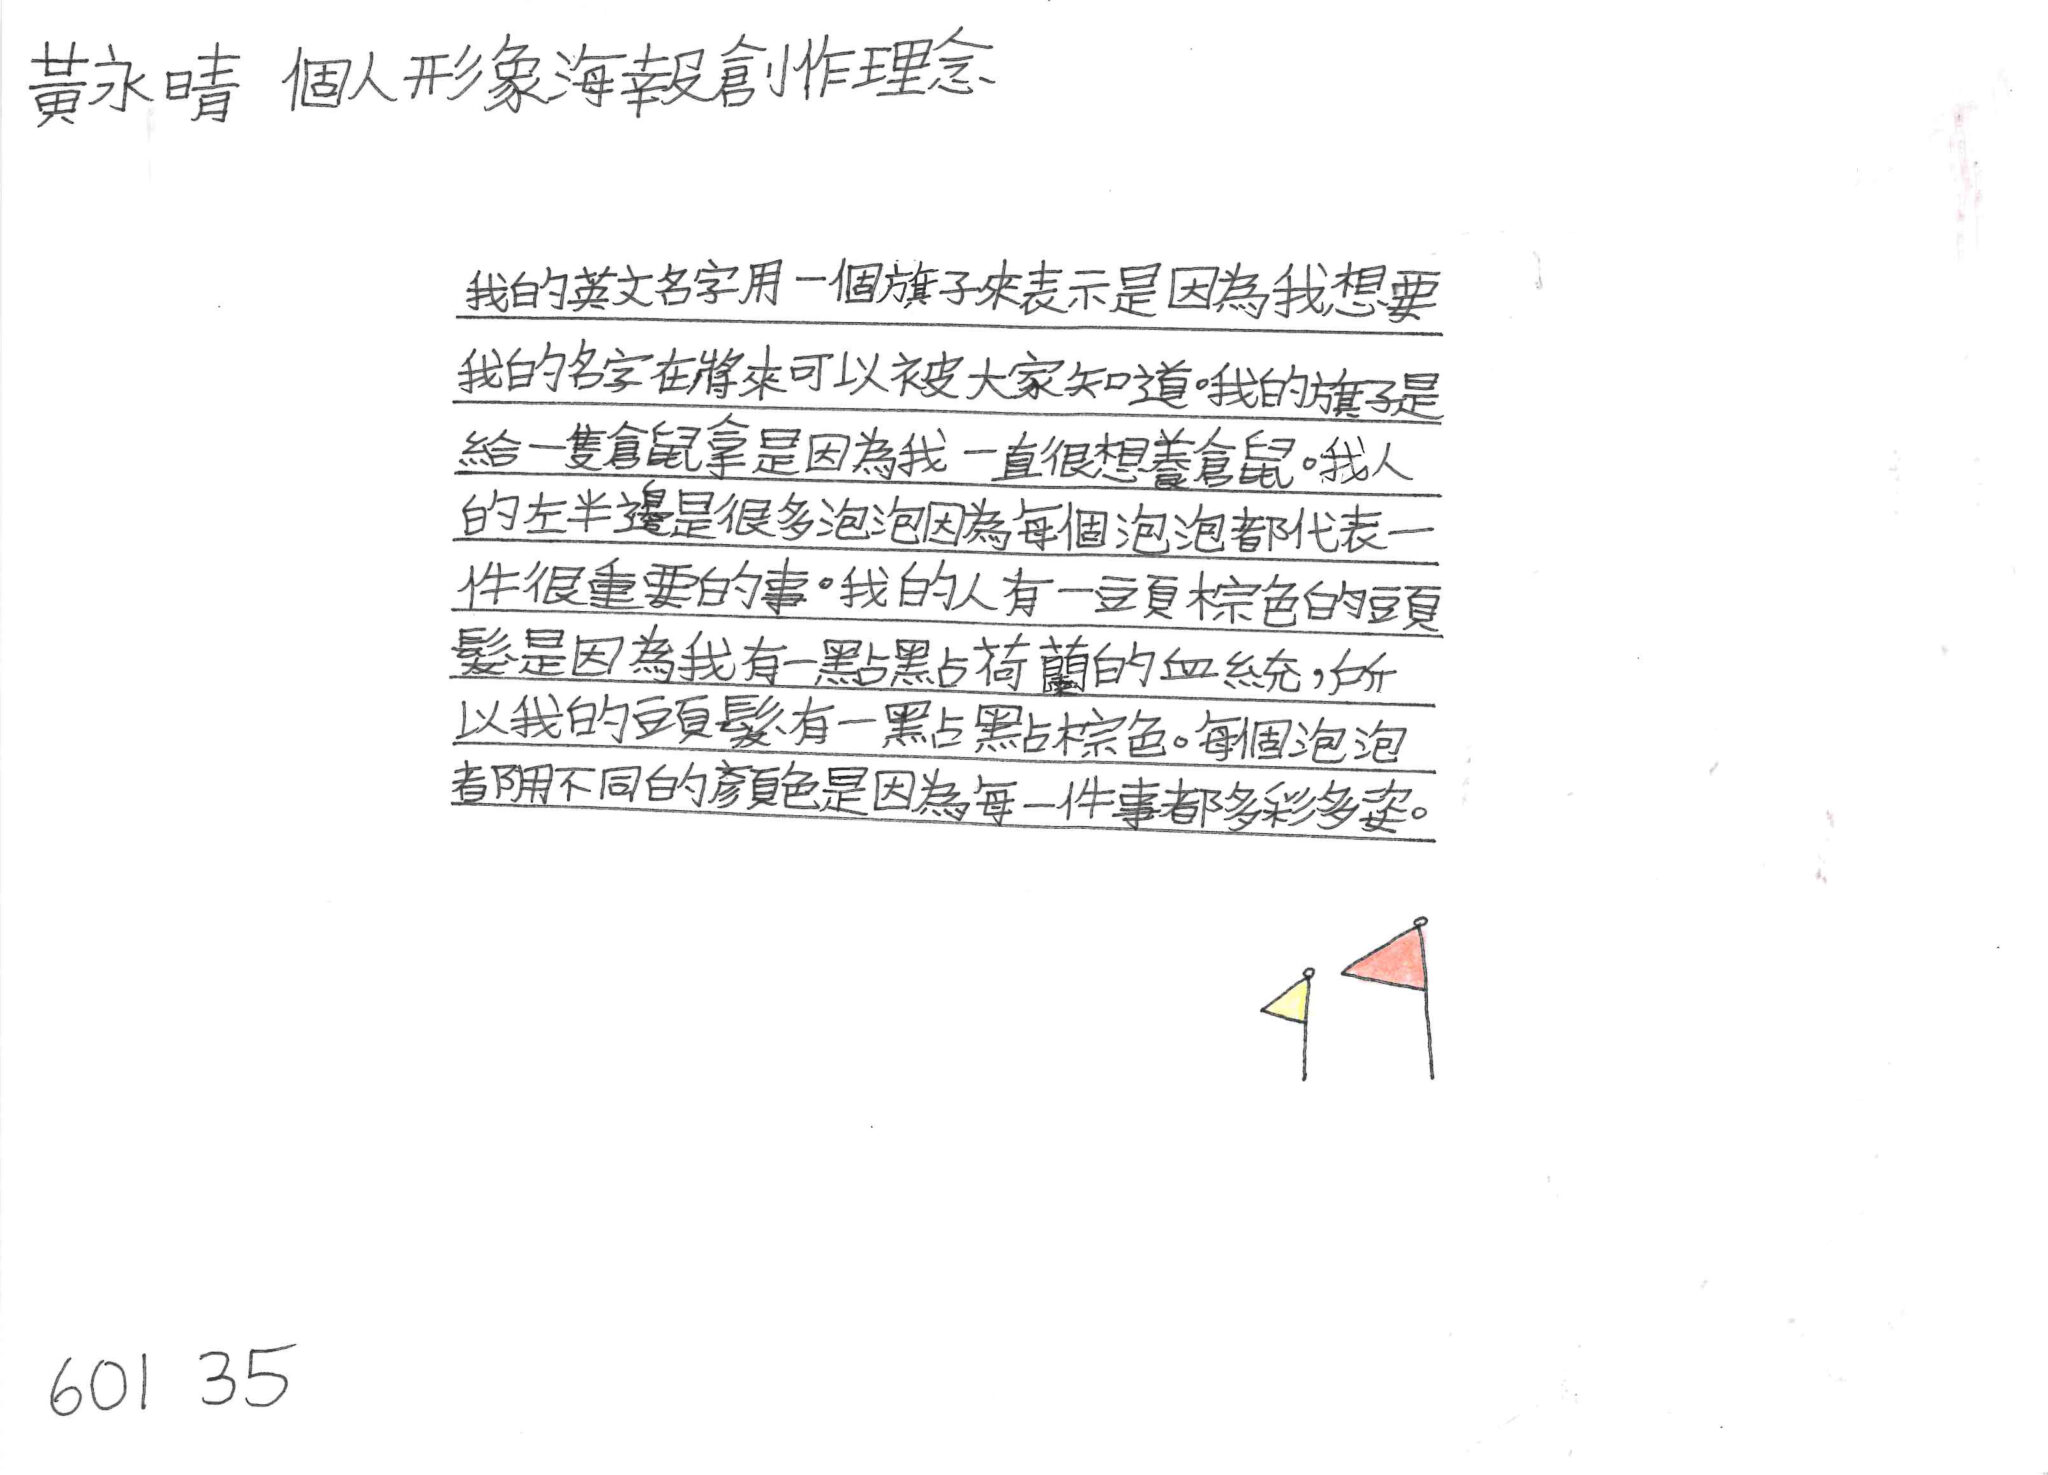 黃永晴 個人形象海報創作理念
我的英文名字用一個旗子來表示是因為我想要
我的名字在將來可以被大家知道。我的旗子是
給一隻倉鼠拿是因為我一直很想養倉鼠。我人
的左半邊是很多泡泡因為每個泡泡都代表一
件很重要的事。我的人有一頭棕色的頭
髮是因為我有一點點荷蘭的血統，所
以我的頭髮有一點點棕色。每個泡泡
都用不同的顏色是因為每一件事都多彩多姿。
601 35